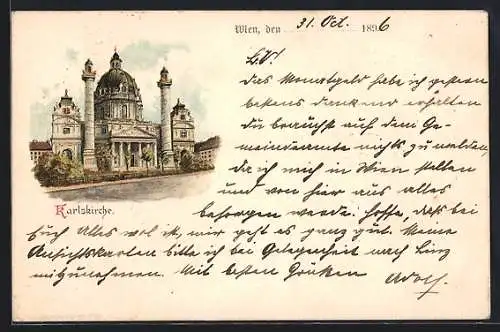 Wien, den 31. Oct. 1896
L. V!
das Monatgeld habe ich gestern
bestens dankend erhalten
du brauchst auf dem Ge-
meindeamte nichts zu melden,
da ich mich in Wien stellen
und von hier aus alles
besorgen werde. Hoffe, daß bei
Euch Alles wol ist, mir geht es ganz gut. Meine
Ansichtskarten bitte ich bei Gelegenheit nach Linz
mitzunehmen. Mit besten Grüßen
Adolf.
Karlskirche.